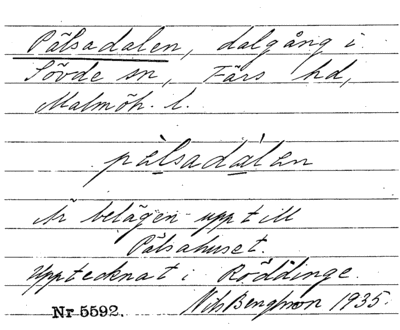 Pälsadalen, dalgång i
Sövde sn, Färs hd,
Malmöh. l.
pälsadàlen
Är belägen upp till
Pälsahuset.
Upptecknat i Röddinge.
Nr 5592. Nils Bengtsson 1935.